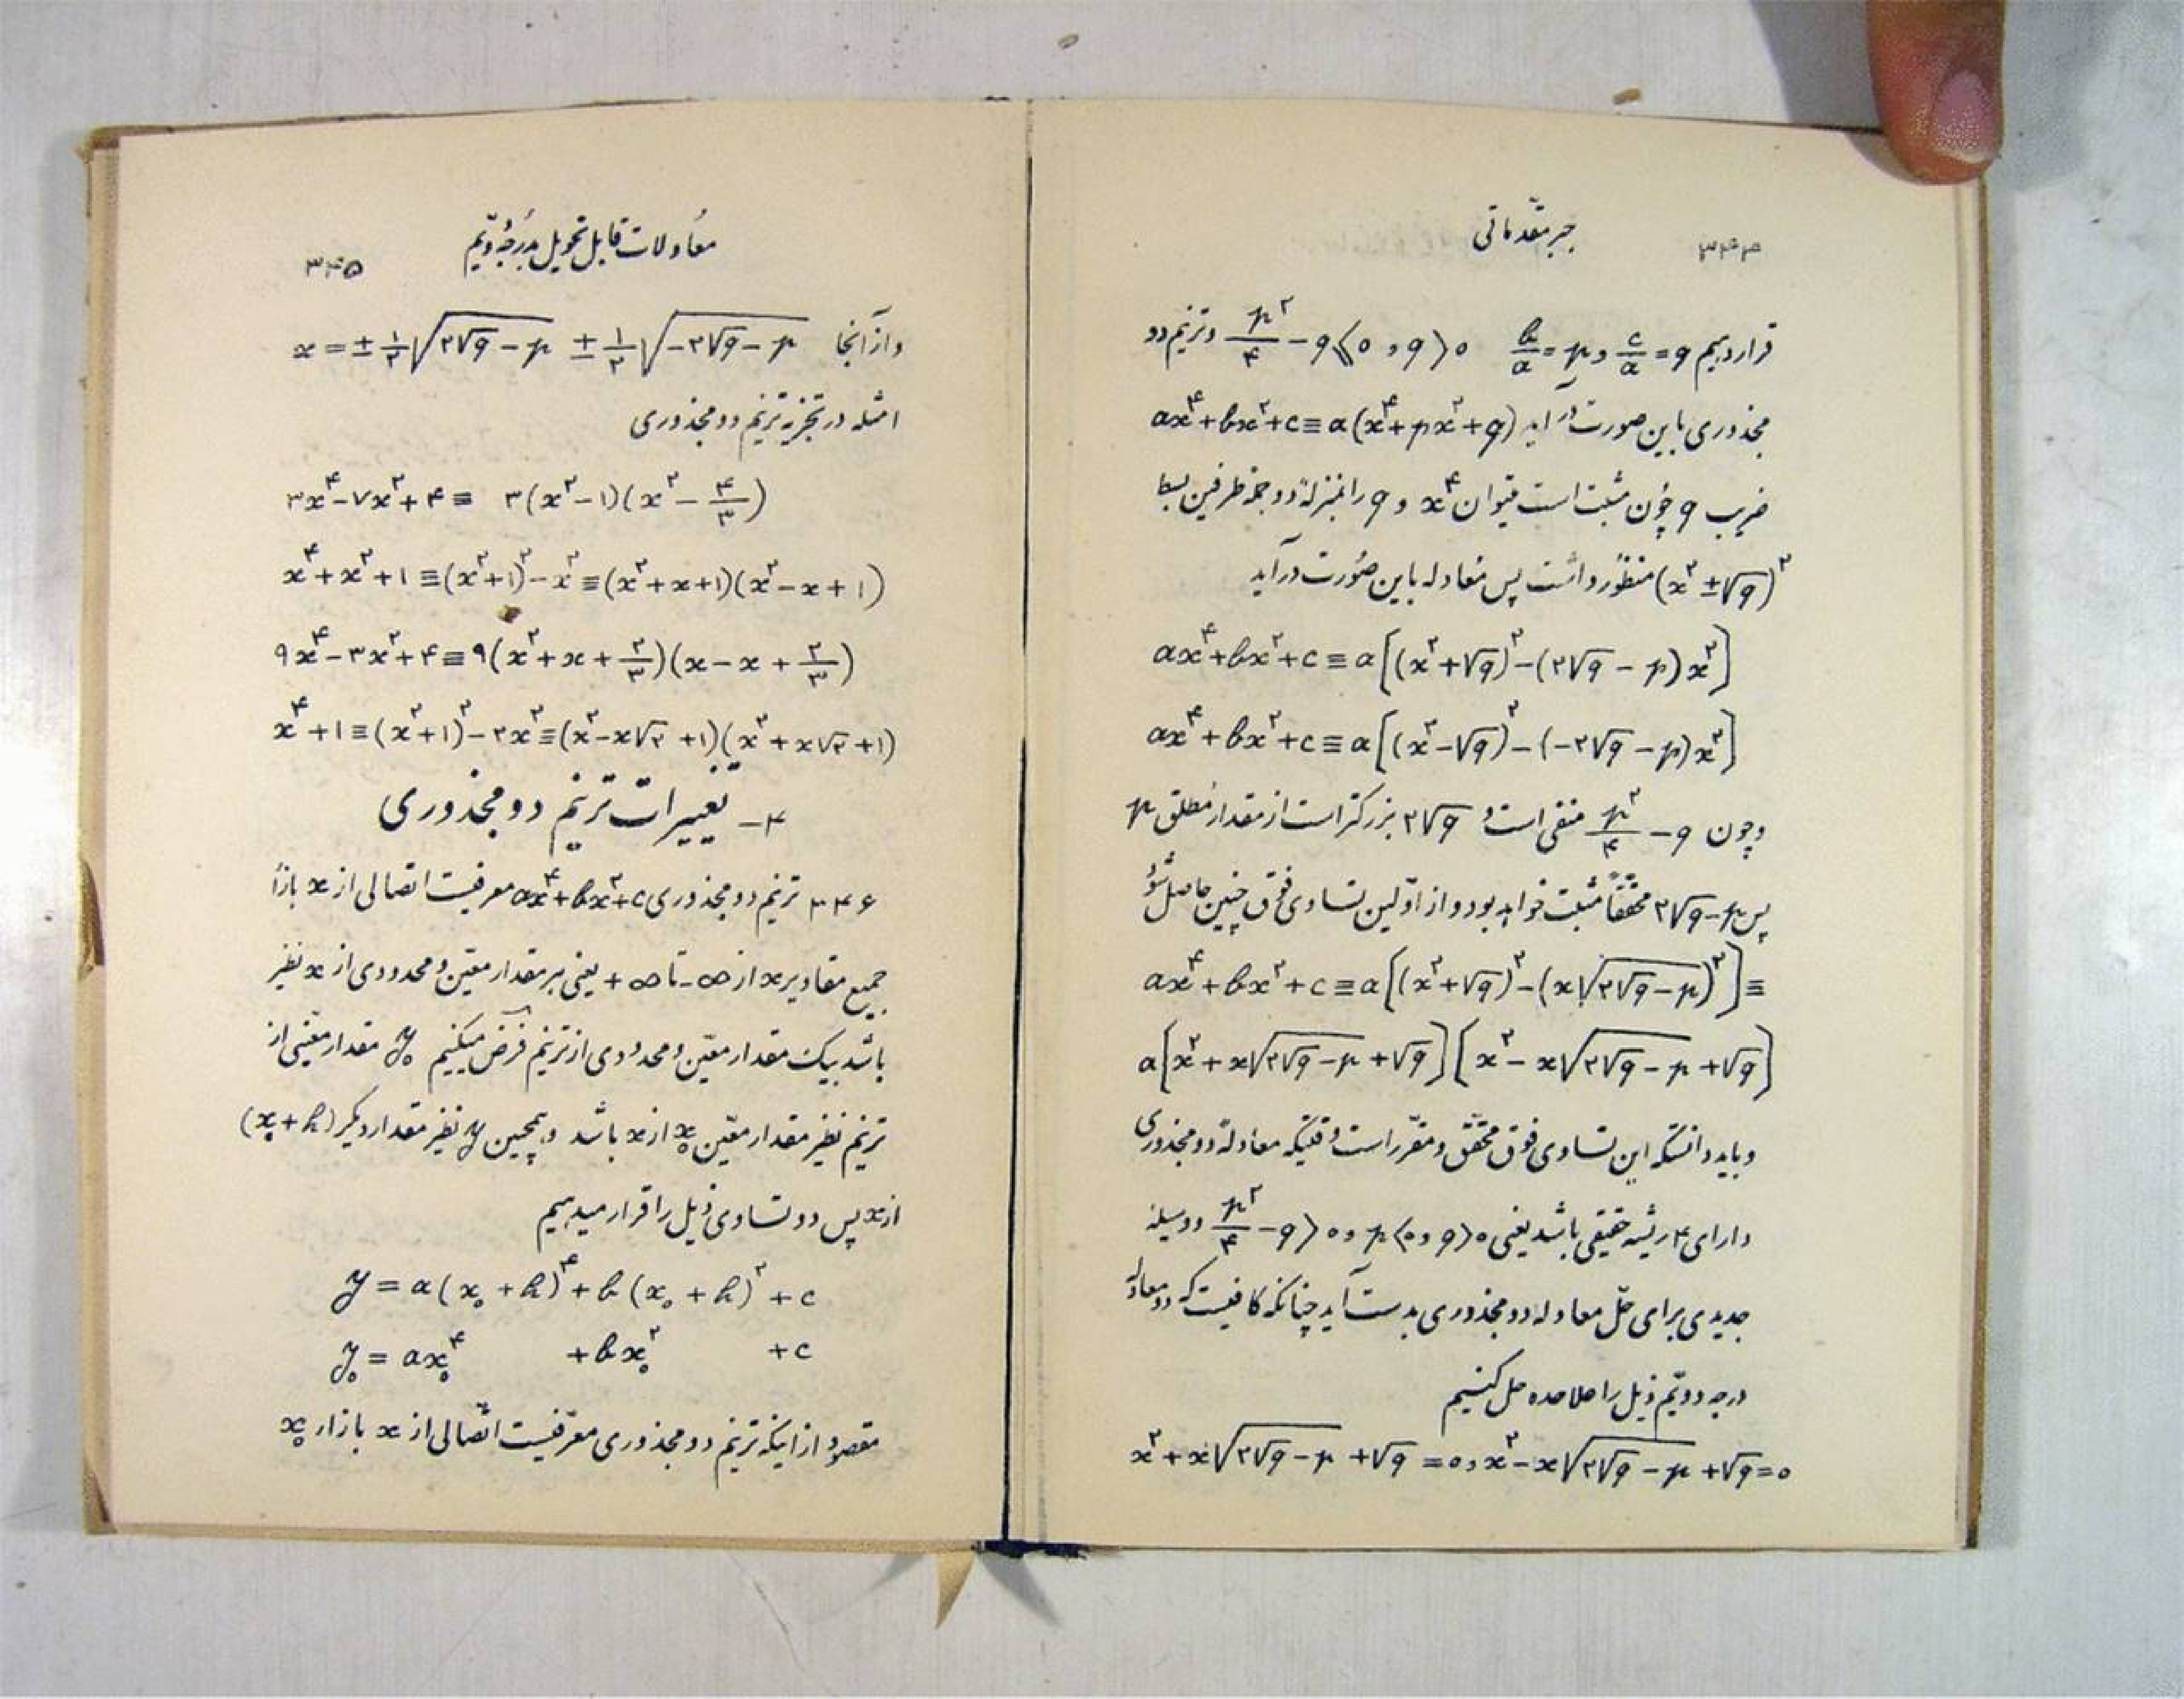 ۳۴۴ جبر مقدماتی
قرار دهیم c/a = q و b/a = p و q > 0 و p²/۴ − q < 0 و ترینم دو
مجذوری باین صورت در آید ax⁴+bx²+c ≡ a(x⁴+px²+q)
ضریب q چون مثبت است میتوان x⁴ و q را بمنزلهٔ دو جمله طرفین بسط
(x² ± √q)² منظور داشت پس معادله باین صورت در آید
ax⁴+bx²+c ≡ a[(x²+√q)²−(۲√q − p)x²]
ax⁴+bx²+c ≡ a[(x²−√q)²−(−۲√q − p)x²]
و چون p²/۴ − q منفی است و ۲√q بزرگتر است از مقدار مطلق p
پس ۲√q−p محققاً مثبت خواهد بود و از اولین تساوی فوق چنین حاصل شود
ax⁴+bx²+c ≡ a[(x²+√q)²−(x√(۲√q−p))²] ≡
a[x²+x√(۲√q−p)+√q][x²−x√(۲√q−p)+√q]
و باید دانست که این تساوی فوق محقق و مقرر است وقتیکه معادلهٔ دو مجذوری
دارای ۴ ریشه حقیقی باشد یعنی p²/۴ − q > 0 و p < 0 و q > 0 و وسیله
جدیدی برای حلّ معادله دو مجذوری بدست آید چنانکه کافیست که دو معادله
درجه دویّم ذیل را علاحده حل کنیم
x²+x√(۲√q−p)+√q = 0 و x²−x√(۲√q−p)+√q = 0
معادلات قابل تحویل بدرجهٔ دویّم ۳۴۵
و از آنجا x = ± ۱/۲ √(۲√q − p) ± ۱/۲ √(−۲√q − p)
امثله در تجزیه ترینم دو مجذوری
۳x⁴−۷x²+۴ ≡ ۳(x²−۱)(x²−۴/۳)
x⁴+x²+۱ ≡ (x²+۱)²−x² ≡ (x²+x+۱)(x²−x+۱)
۹x⁴−۳x²+۴ ≡ ۹(x²+x+۲/۳)(x−x+۲/۳)
x⁴+۱ ≡ (x²+۱)²−۲x² ≡ (x²−x√۲+۱)(x²+x√۲+۱)
۴− تغییرات ترینم دو مجذوری
۳۴۶ ترینم دو مجذوری ax⁴+bx²+c معرفیست اتصالی از x بازاءِ
جمیع مقادیر x از ∞− تا ∞+ یعنی هر مقدار معیّن و محدودی از x نظیر
باشد بیک مقدار معیّن و محدودی از ترینم فرض میکنیم y₀ مقدار معیّنی از
ترینم نظیر مقدار معیّن x₀ از x باشد و همچنین y نظیر مقدار دیگر (x₀+h)
از x پس دو تساوی ذیل را قرار میدهیم
y = a(x₀+h)⁴+b(x₀+h)²+c
y₀ = ax₀⁴ +bx₀² +c
مقصود از اینکه ترینم دو مجذوری معرّفیست اتّصالی از x بازاءِ x₀